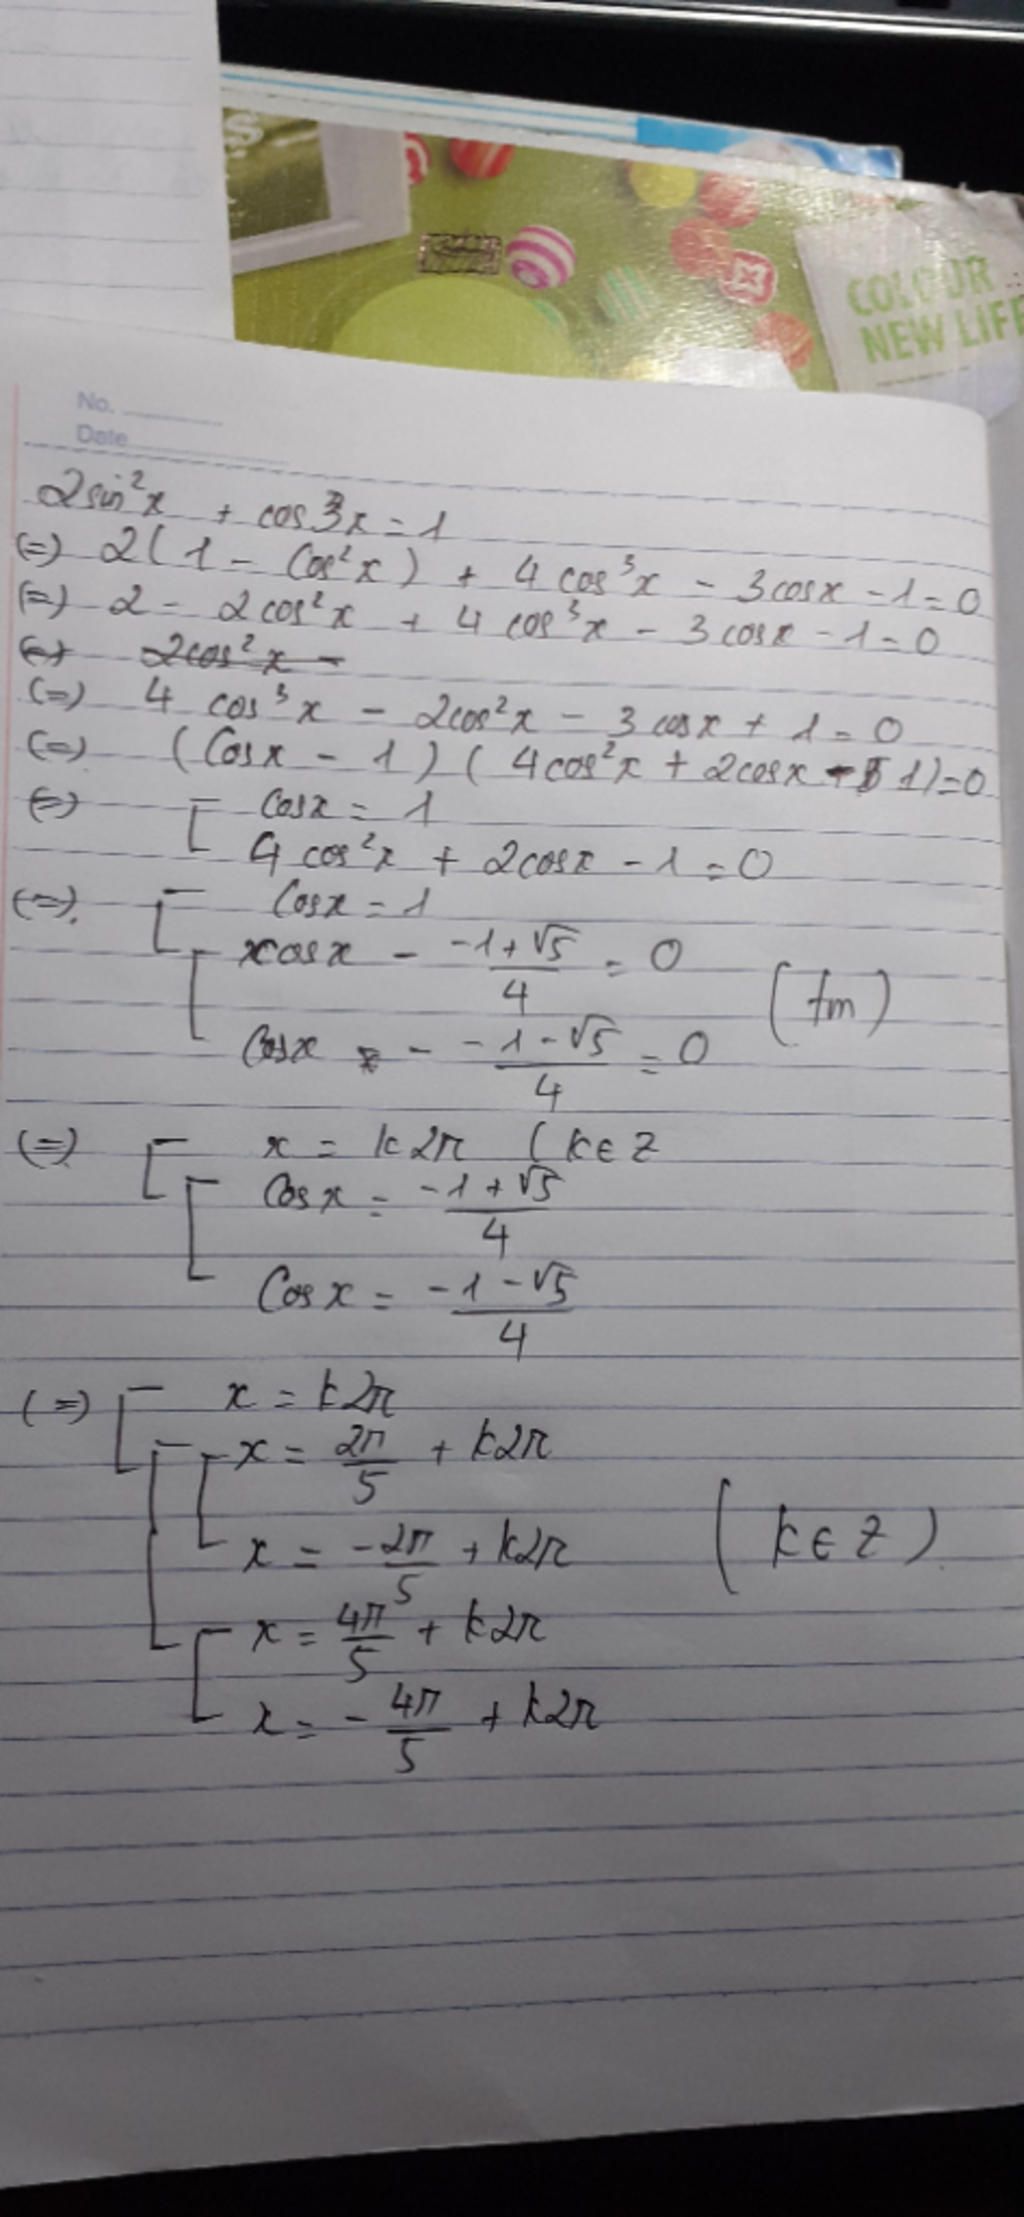 S
COLOUR
NEW LIFE
No.
Date
2sin²x + cos3x = 1
(=) 2(1 - Cos²x) + 4cos³x - 3cosx - 1 = 0
(=) 2 - 2cos²x + 4cos³x - 3cosx - 1 = 0
(=) 2cos²x -
(=) 4cos³x - 2cos²x - 3cosx + 1 = 0
(=) (Cosx - 1)(4cos²x + 2cosx - 1) = 0
(=) [ Cosx = 1
4cos²x + 2cosx - 1 = 0
(=) [ Cosx = 1
[ cosx - (-1+√5)/4 = 0 (tm)
Cosx - (-1-√5)/4 = 0
(=) [ x = k2π (k∈Z
[ Cosx = (-1+√5)/4
Cosx = (-1-√5)/4
(=) [ x = k2π
[ [ x = 2π/5 + k2π
x = -2π/5 + k2π (k∈Z)
[ x = 4π/5 + k2π
x = -4π/5 + k2π